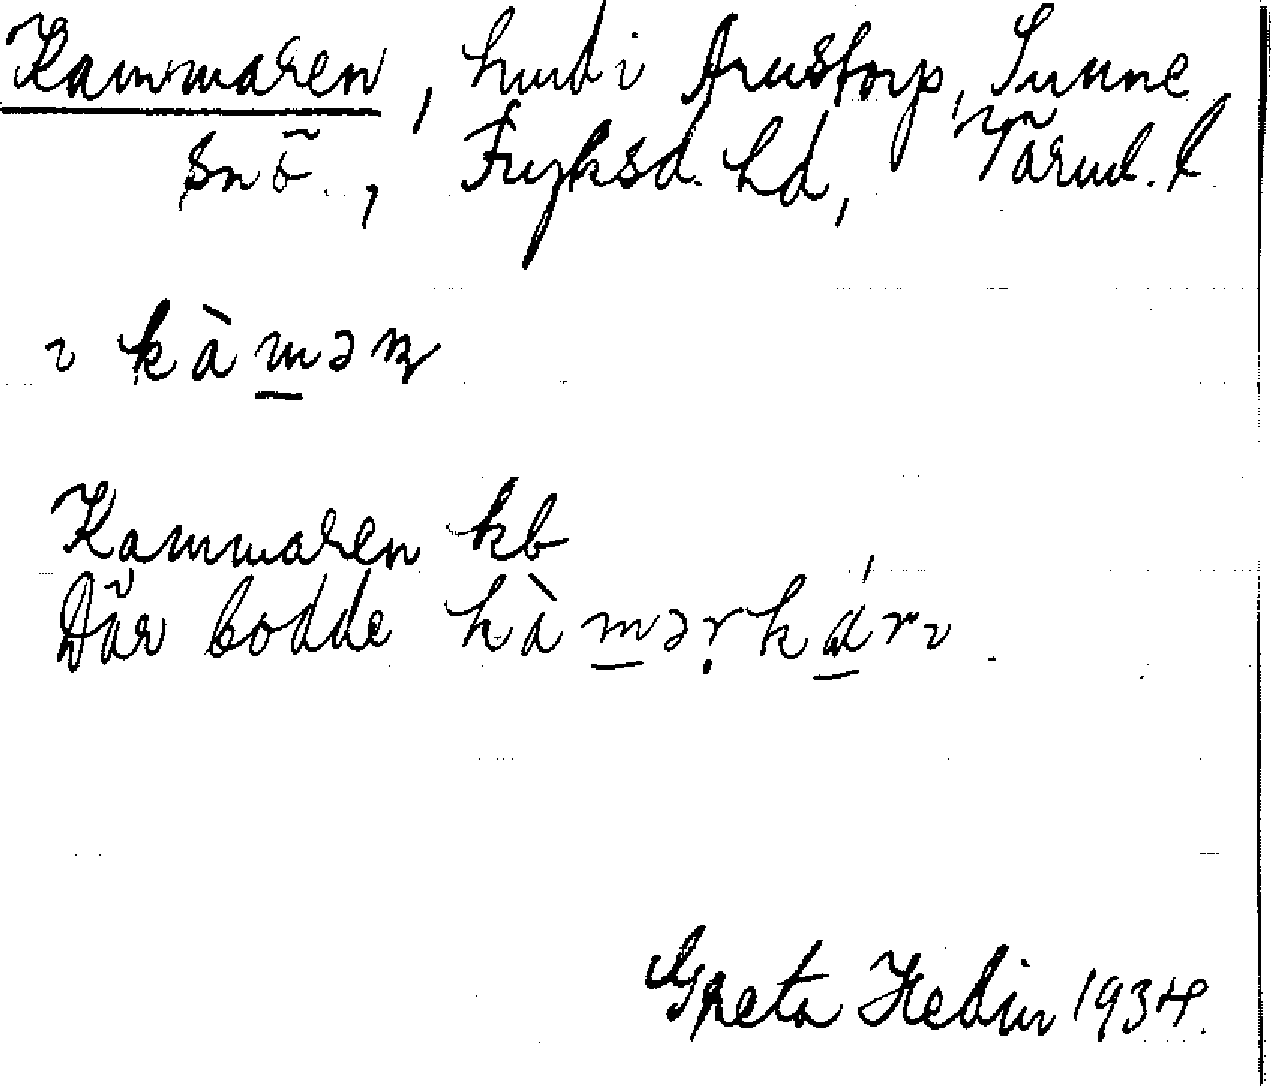 Kammaren, hmd i Arnstorp, Sunne
sn ö., Fryksd. hd, Värml. l
ı kàm̲əɳ
Kammaren kb
Där bodde kàm̲əṛká̲rı.
Greta Hedin 1934.